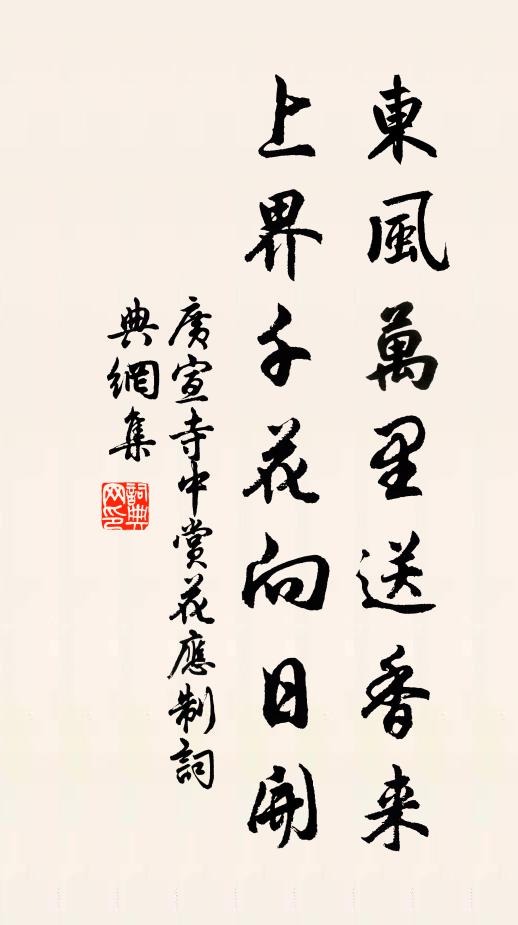 東風萬里送香来
上界千花向日開
廣宣寺中賞花應制詞
典網集
詞典
网印